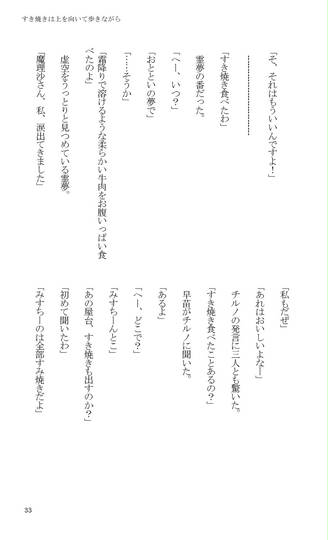 すき焼きは上を向いて歩きながら
「そ、それはもういいんですよ！」
「すき焼き食べたわ」
霊夢の番だった。
「へー、いつ？」
「おとといの夢で」
「……そうか」
「霜降りで溶けるような柔らかい牛肉をお腹いっぱい食
べたのよ」
虚空をうっとりと見つめている霊夢。
「魔理沙さん、私、涙出てきました」
「私もだぜ」
「あれはおいしいよなー」
チルノの発言に三人とも驚いた。
「すき焼き食べたことあるの？」
早苗がチルノに聞いた。
「あるよ」
「へー、どこで？」
「みすちーんとこ」
「あの屋台、すき焼きも出すのか？」
「初めて聞いたわ」
「みすちーのは全部すみ焼きだよ」
33